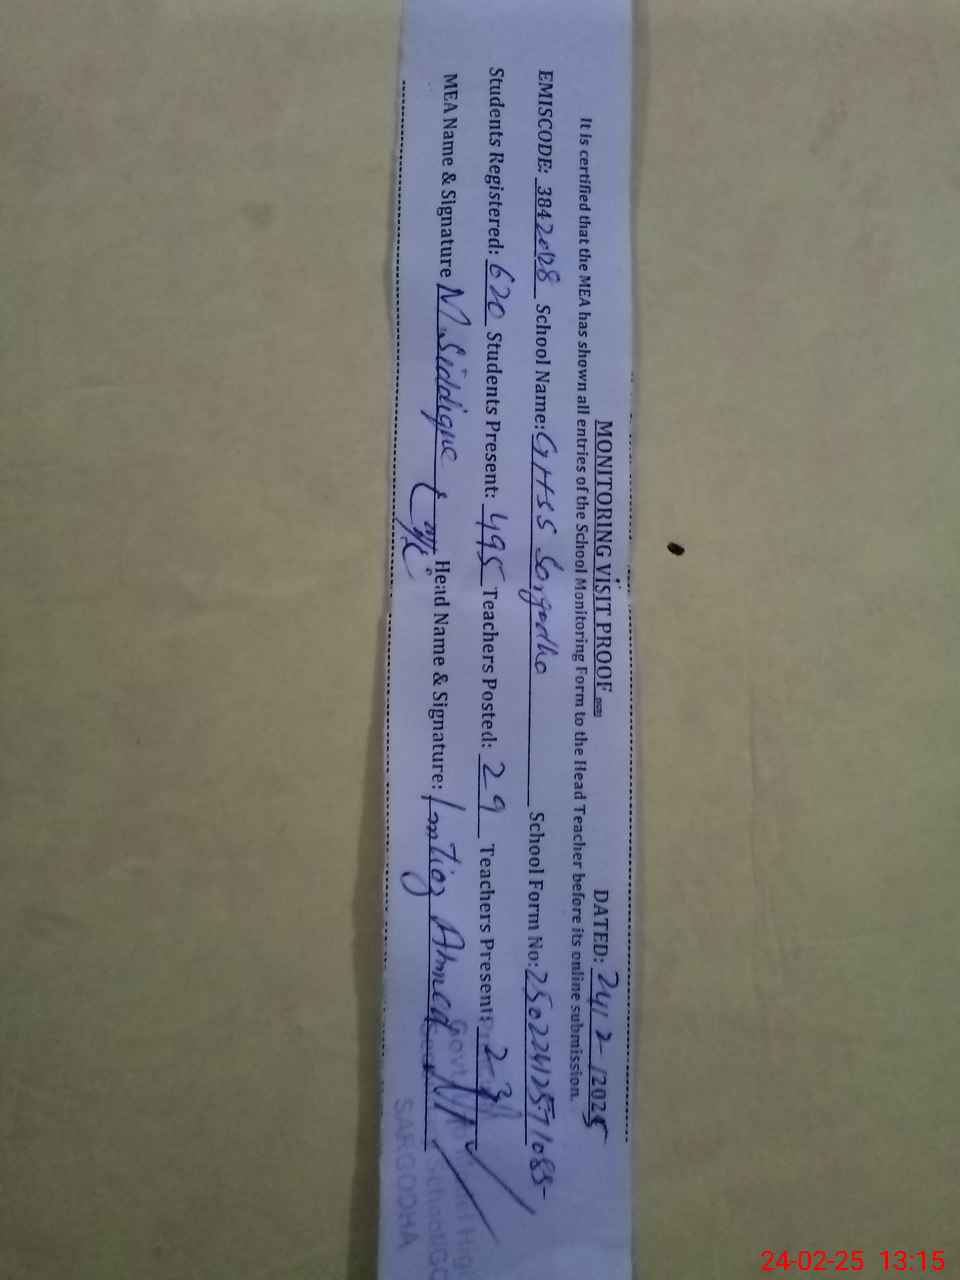 MONITORING VISIT PROOF DATED: 24/2/2025
It is certified that the MEA has shown all entries of the School Monitoring Form to the Head Teacher before its online submission.
EMISCODE: 38420128 School Name: GHSS Sargodha School Form No:
Students Registered: 620 Students Present: 495 Teachers Posted: 29 Teachers Present: 23
MEA Name & Signature M. Siddique Head Name & Signature: Imtiaz Ahmed
Govt.
SARGODHA
24-02-25 13:15